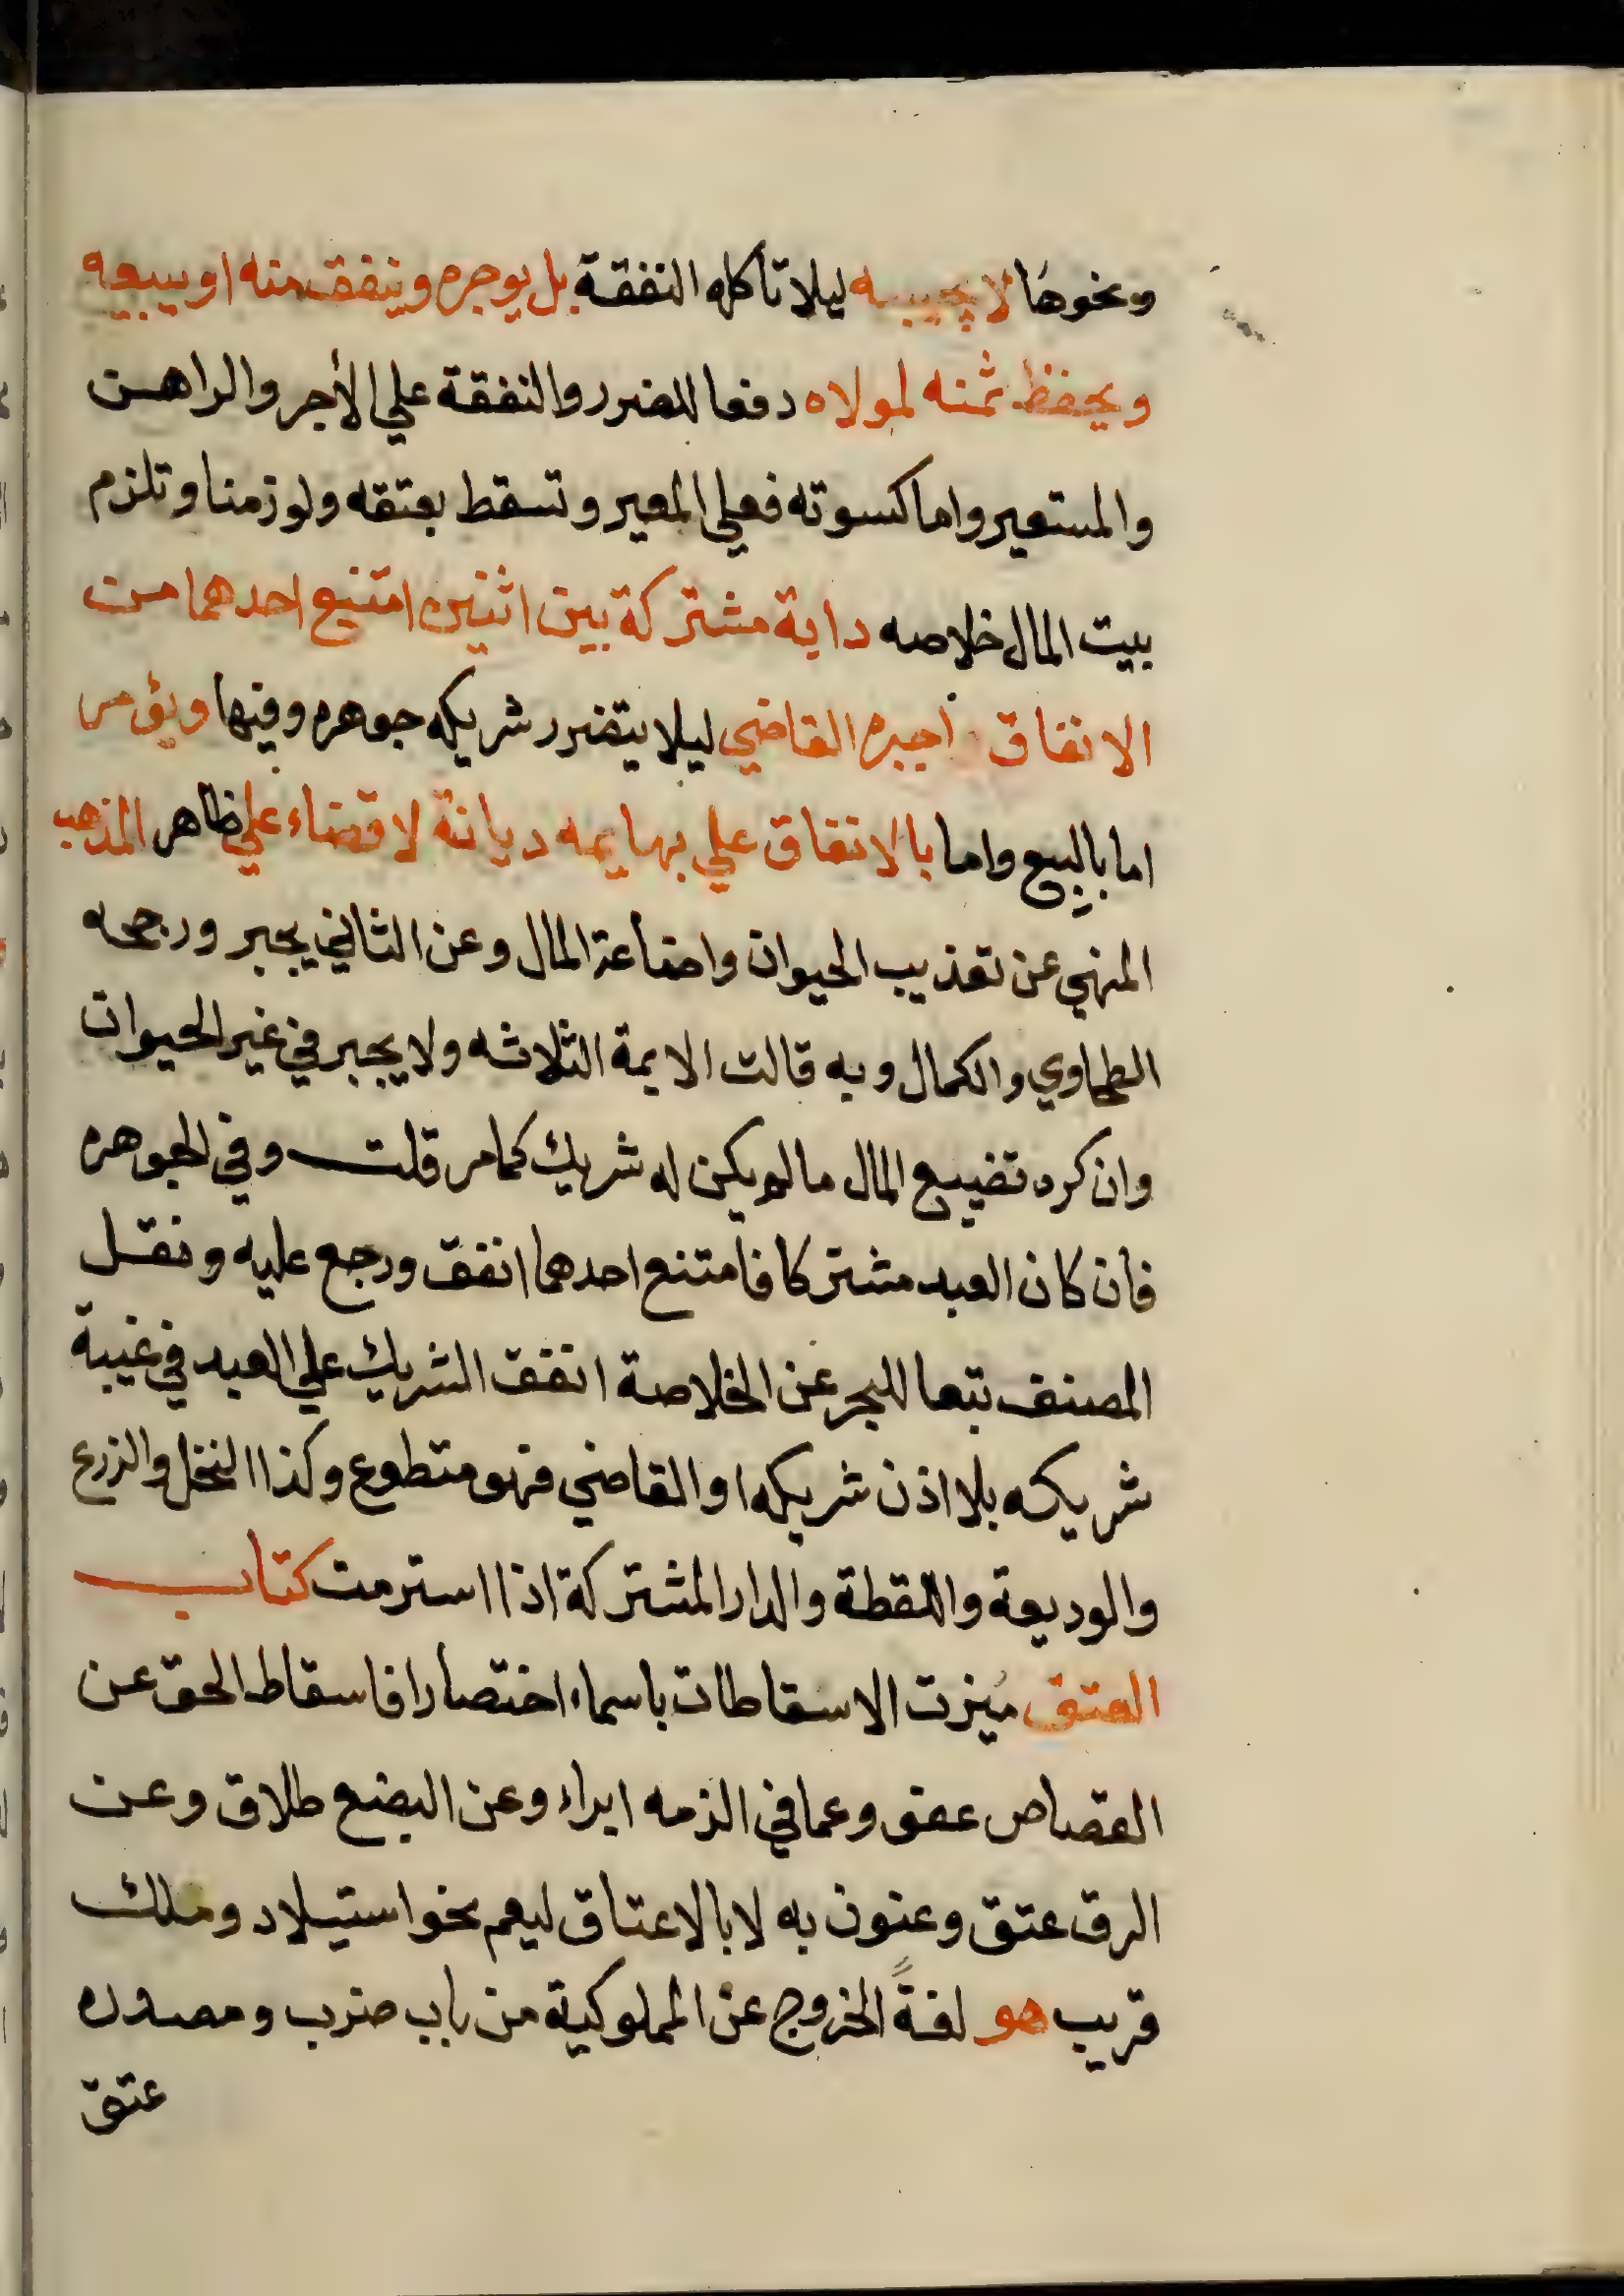 ونحوها لا يجيبه ليلا تاكله النفقة بل يوجره وينفق منه او يبيعه
ويحفظ ثمنه لمولاه دفعا للضرر والنفقة علي الأجر والراهن
والمستعير واما كسوته فعلي المعير وتسقط بعتقه ولو زمنا وتلزم
بيت المال خلاصه دابة مشتركة بين اثنين امتنع احدهما من
الانفاق اجبره القاضي ليلا يتضرر شريكه جوهره وفيها ويؤمر
اما بالبيع واما بالانفاق علي بهايمه ديانة لا قضاء علي ظاهر المذهب
المنهي عن تعذيب الحيوان واضاعة المال وعن الثاني يجبر ورجحه
الطحاوي والكمال وبه قالت الايمة الثلاثه ولا يجبر في غير الحيوان
وان كره تضييع المال ما لم يكن له شريك كما مر قلت وفي الجوهره
فان كان العبد مشتركا فامتنع احدهما انفق ورجع عليه ونقل
المصنف تبعا للبحر عن الخلاصة انفق الشريك علي العبد في غيبة
شريكه بلا اذن شريكه او القاضي فهو متطوع وكذا النخل والزرع
والوديعة واللقطة والدار المشتركة اذا استرمت كتاب
العتق ميزت الاسقاطات باسماء اختصارا فاسقاط الحق عن
القصاص عفو وعما في الذمه ابراء وعن البضع طلاق وعن
الرق عتق وعنون به لا بالاعتاق ليعم نحو استيلاد وملك
قريب هو لغةً الخروج عن المملوكية من باب ضرب ومصدره
عتق